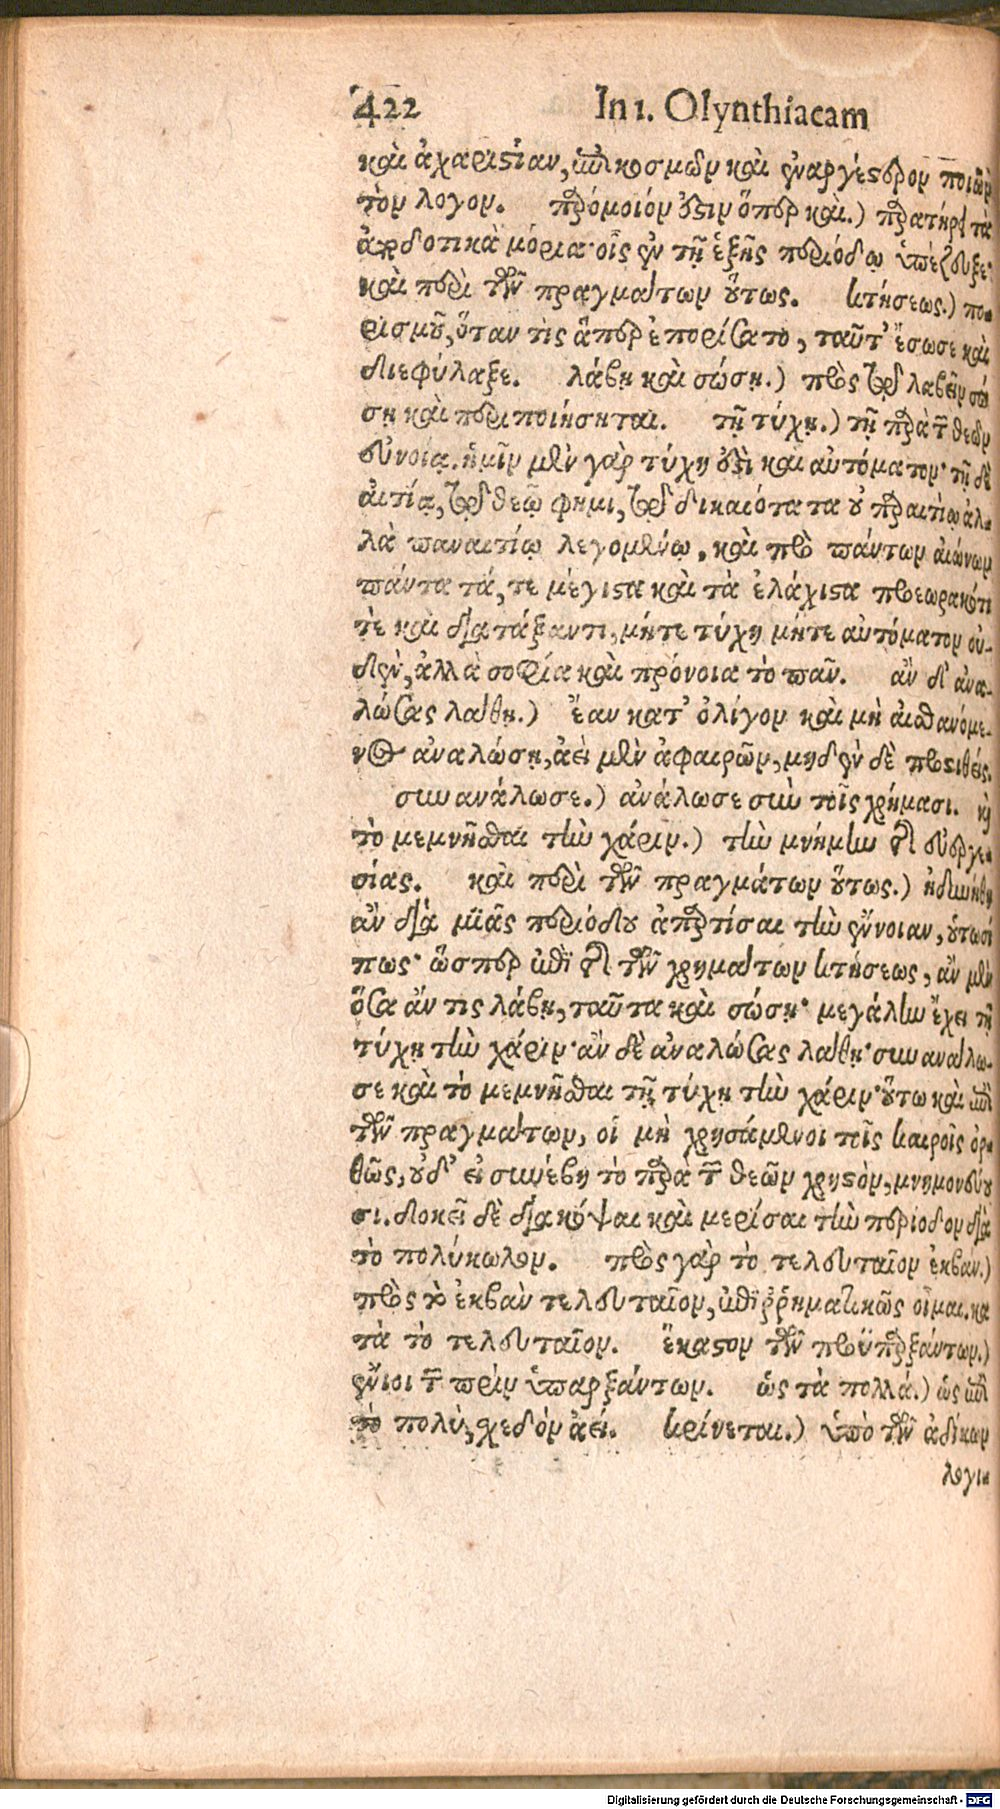 422 In 1. Olynthiacam
καὶ ἀχαριστίαν, ἐπικοσμῶν καὶ ἐναργέστερον ποιῶν
τὸν λογον. παρόμοιόν ἐστιν ὅπερ καὶ.) παρατήρει τὰ
ἀποδοτικὰ μόρια· οἷς ἐν τῇ ἑξῆς περιόδῳ ὑπέζευξε·
καὶ περὶ τῶν πραγμάτων οὕτως. κτήσεως.) πο-
ρισμοῦ, ὅταν τὶς ἅπερ ἐπορίσατο, ταῦτ' ἔσωσε καὶ
διεφύλαξε. λάβῃ καὶ σώσῃ.) πρὸς τῷ λαβεῖν σώ
σῃ καὶ περιποιήσηται. τῇ τύχῃ.) τῇ παρὰ τῶν θεῶν
εὐνοίᾳ. ἡμῖν μὲν γὰρ τύχη ἐστὶ καὶ αὐτόματον· τῇ δὲ
αἰτίᾳ, τῷ θεῷ φημι, τῷ δικαιότατα οὐ παραιτίῳ ἀλ-
λὰ παναιτίῳ λεγομένῳ, καὶ πρὸ πάντων αἰώνων
πάντα τά, τε μέγιστα καὶ τὰ ἐλάχιστα προεωρακότι
τὲ καὶ διατάξαντι, μήτε τύχη μήτε αὐτόματον οὐ-
δὲν, ἀλλὰ σοφία καὶ πρόνοια τὸ πᾶν. ἂν δ' ἀνα-
λώσας λάθῃ.) ἔαν κατ' ὀλίγον καὶ μὴ αἰσθανόμε-
νος ἀναλώσῃ, ἀεὶ μὲν ἀφαιρῶν, μηδὲν δὲ προστιθείς.
συνανάλωσε.) ἀνάλωσε σὺν τοῖς χρήμασι. καὶ
τὸ μεμνῆσθαι τὴν χάριν.) τὴν μνήμην τῆς εὐεργε-
σίας. καὶ περὶ τῶν πραγμάτων οὕτως.) ἠδυνήθη
ἂν διὰ μιᾶς περιόδου ἀπαρτίσαι τὴν ἔννοιαν, οὑτωσί
πως· ὥσπερ ἐπὶ τῆς τῶν χρημάτων κτήσεως, ἂν μὲν
ὅσα ἄν τις λάβῃ, ταῦτα καὶ σώσῃ· μεγάλην ἔχει τῇ
τύχῃ τὴν χάριν· ἂν δὲ ἀναλώσας λάθῃ· συνανάλω-
σε καὶ τὸ μεμνῆσθαι τῇ τύχῃ τὴν χάριν· οὕτω καὶ ἐπὶ
τῶν πραγμάτων, οἱ μὴ χρησάμενοι τοῖς καιροῖς ὀρ-
θῶς, οὐδ' εἰ συνέβη τὸ παρὰ τῶν θεῶν χρηστὸν, μνημονεύου
σι. δοκεῖ δὲ διακόψαι καὶ μερίσαι τὴν περίοδον διὰ
τὸ πολύκωλον. πρὸς γὰρ τὸ τελευταῖον ἐκβάν.)
πρὸς τὸ ἐκβὰν τελευταῖον, ἐπιῤῥηματικῶς οἶμαι. κα
τὰ τὸ τελευταῖον. ἕκαστον τῶν προϋπαρξάντων.)
ἔνιοι τῶν πρὶν ὑπαρξάντων. ὡς τὰ πολλά.) ὡς ἐπὶ
τὸ πολὺ, σχεδὸν ἀεί. κρίνεται.) ὑπὸ τῶν ἀδίκων
λογι-
Digitalisierung gefördert durch die Deutsche Forschungsgemeinschaft - DFG